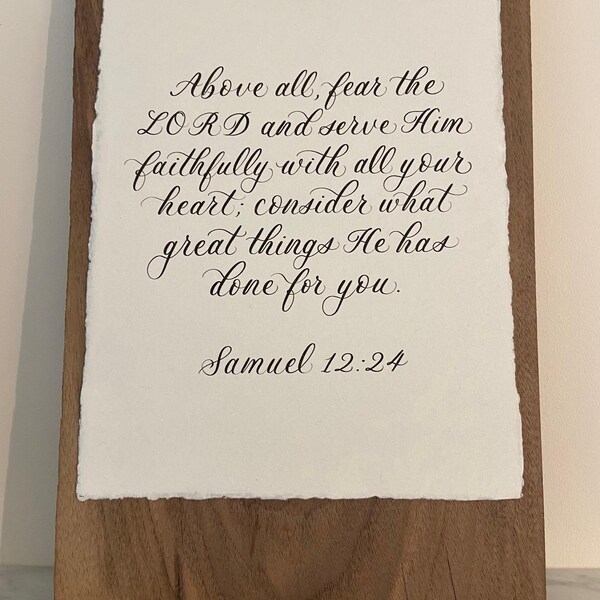 Above all, fear the
LORD and serve Him
faithfully with all your
heart; consider what
great things He has
done for you.
Samuel 12:24